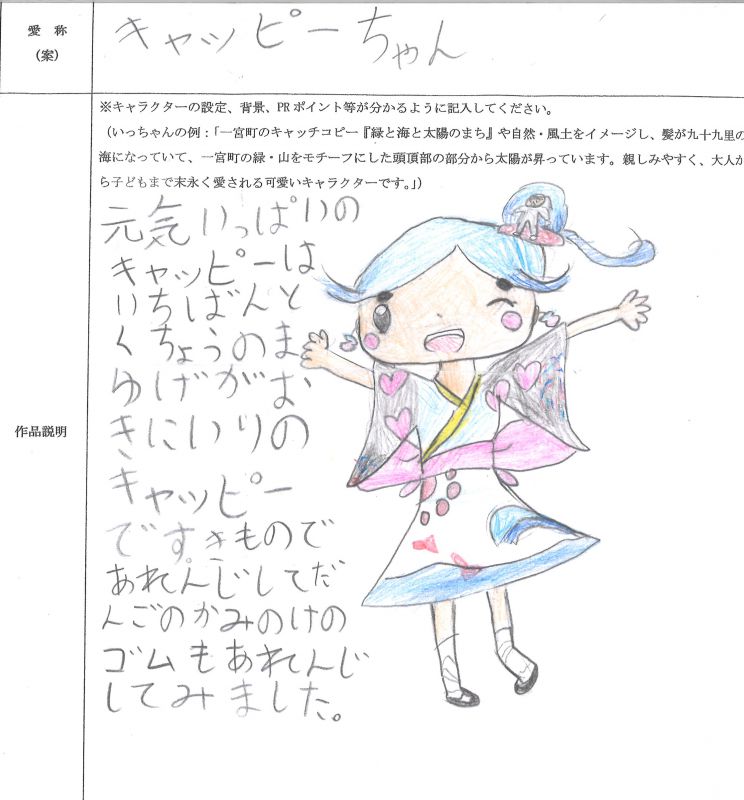 愛 称
(案)
キャッピーちゃん
※キャラクターの設定、背景、PRポイント等が分かるように記入してください。
(いっちゃんの例:「一宮町のキャッチコピー『緑と海と太陽のまち』や自然・風土をイメージし、髪が九十九里の
海になっていて、一宮町の緑・山をモチーフにした頭頂部の部分から太陽が昇っています。親しみやすく、大人か
ら子どもまで末永く愛される可愛いキャラクターです。」)
作品説明
元気いっぱいの
キャッピーは
いちばんと
くちょうのま
ゆげがお
きにいりの
キャッピー
です。きもので
あれんじしてだ
んごのかみのけの
ゴムもあれんじ
してみました。